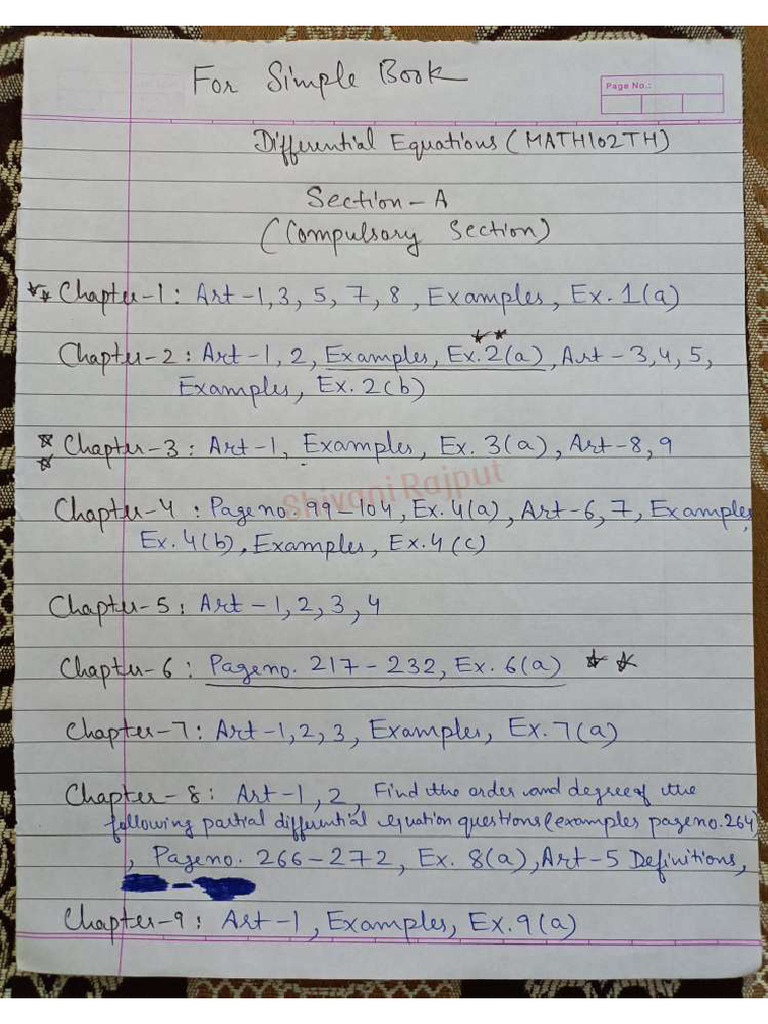 For Simple Book
Page No.:
Differential Equations (MATH102TH)
Section - A
(Compulsory Section)
Chapter-1: Art-1,3,5,7,8, Examples, Ex. 1(a)
Chapter-2: Art-1,2, Examples, Ex. 2(a), Art-3,4,5,
Examples, Ex. 2(b)
Chapter-3: Art-1, Examples, Ex. 3(a), Art-8,9
Shivani Rajput
Chapter-4: Page no. 99-104, Ex. 4(a), Art-6, 7, Examples
Ex. 4(b), Examples, Ex. 4(c)
Chapter-5: Art-1,2,3,4
Chapter-6: Page no. 217-232, Ex. 6(a)
Chapter-7: Art-1,2,3, Examples, Ex. 7(a)
Chapter-8: Art-1,2, Find the order and degree of the
following partial differential equation questions (examples page no. 264)
, Page no. 266-272, Ex. 8(a), Art-5 Definitions,
Chapter-9: Art-1, Examples, Ex. 9(a)